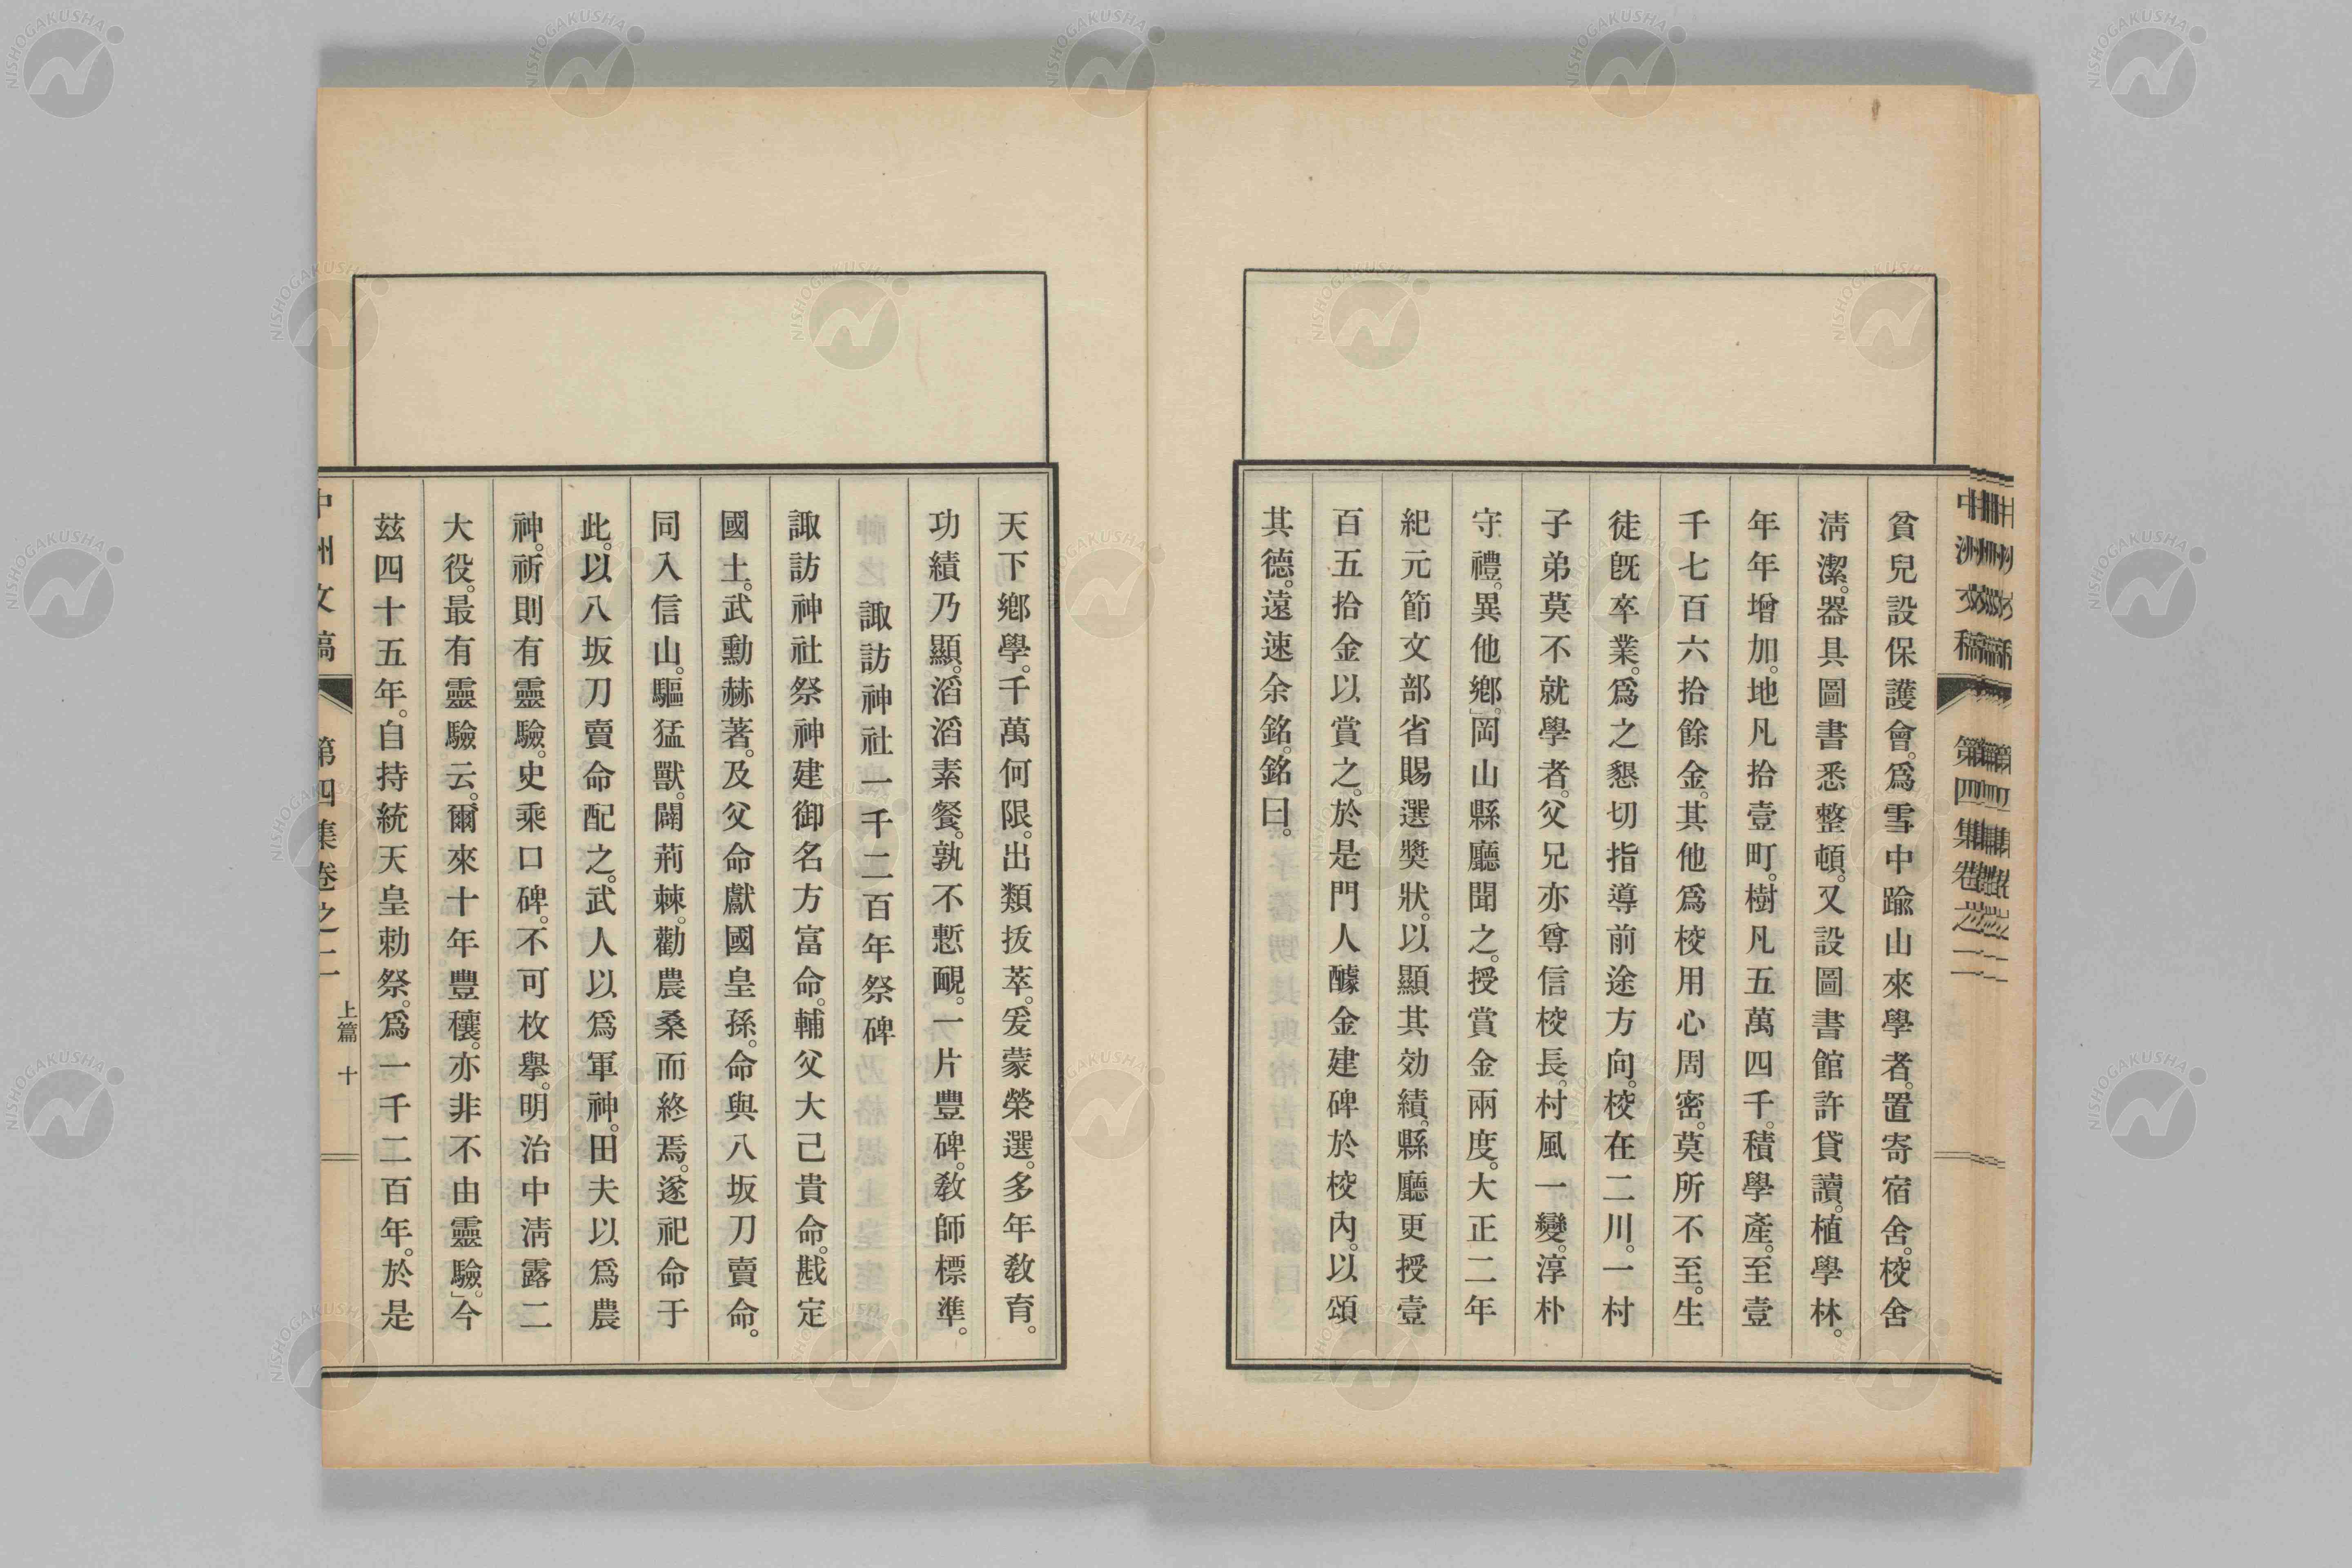 中洲文稿 第四集卷之二
貧兒設保護會。爲雪中踰山來學者。置寄宿舍。校舍
淸潔。器具圖書悉整頓。又設圖書館許貸讀。植學林。
年年增加。地凡拾壹町。樹凡五萬四千。積學產。至壹
千七百六拾餘金。其他爲校用心周密。莫所不至。生
徒旣卒業。爲之懇切指導前途方向。校在二川。一村
子弟莫不就學者。父兄亦尊信校長。村風一變。淳朴
守禮。異他鄕。」岡山縣廳聞之。授賞金兩度。大正二年
紀元節文部省賜選奬狀。以顯其効績。縣廳更授壹
百五拾金以賞之。於是門人醵金建碑於校內。以頌
其德。遠速余銘。銘曰。
天下鄕學。千萬何限。出類拔萃。爰蒙榮選。多年敎育。
功績乃顯。滔滔素餐。孰不慙靦。一片豐碑。敎師標準。
諏訪神社一千二百年祭碑
諏訪神社祭神建御名方富命。輔父大己貴命。戡定
國土。武勳赫著。及父命獻國皇孫。命與八坂刀賣命。
同入信山。驅猛獸。闢荊棘。勸農桑而終焉。遂祀命于
此。以八坂刀賣命配之。武人以爲軍神。田夫以爲農
神。祈則有靈驗。史乘口碑。不可枚擧。明治中淸露二
大役。最有靈驗云。爾來十年豐穰。亦非不由靈驗。」今
茲四十五年。自持統天皇勅祭。爲一千二百年。於是
中洲文稿 第四集卷之二 上篇 十
NISHOGAKUSHA